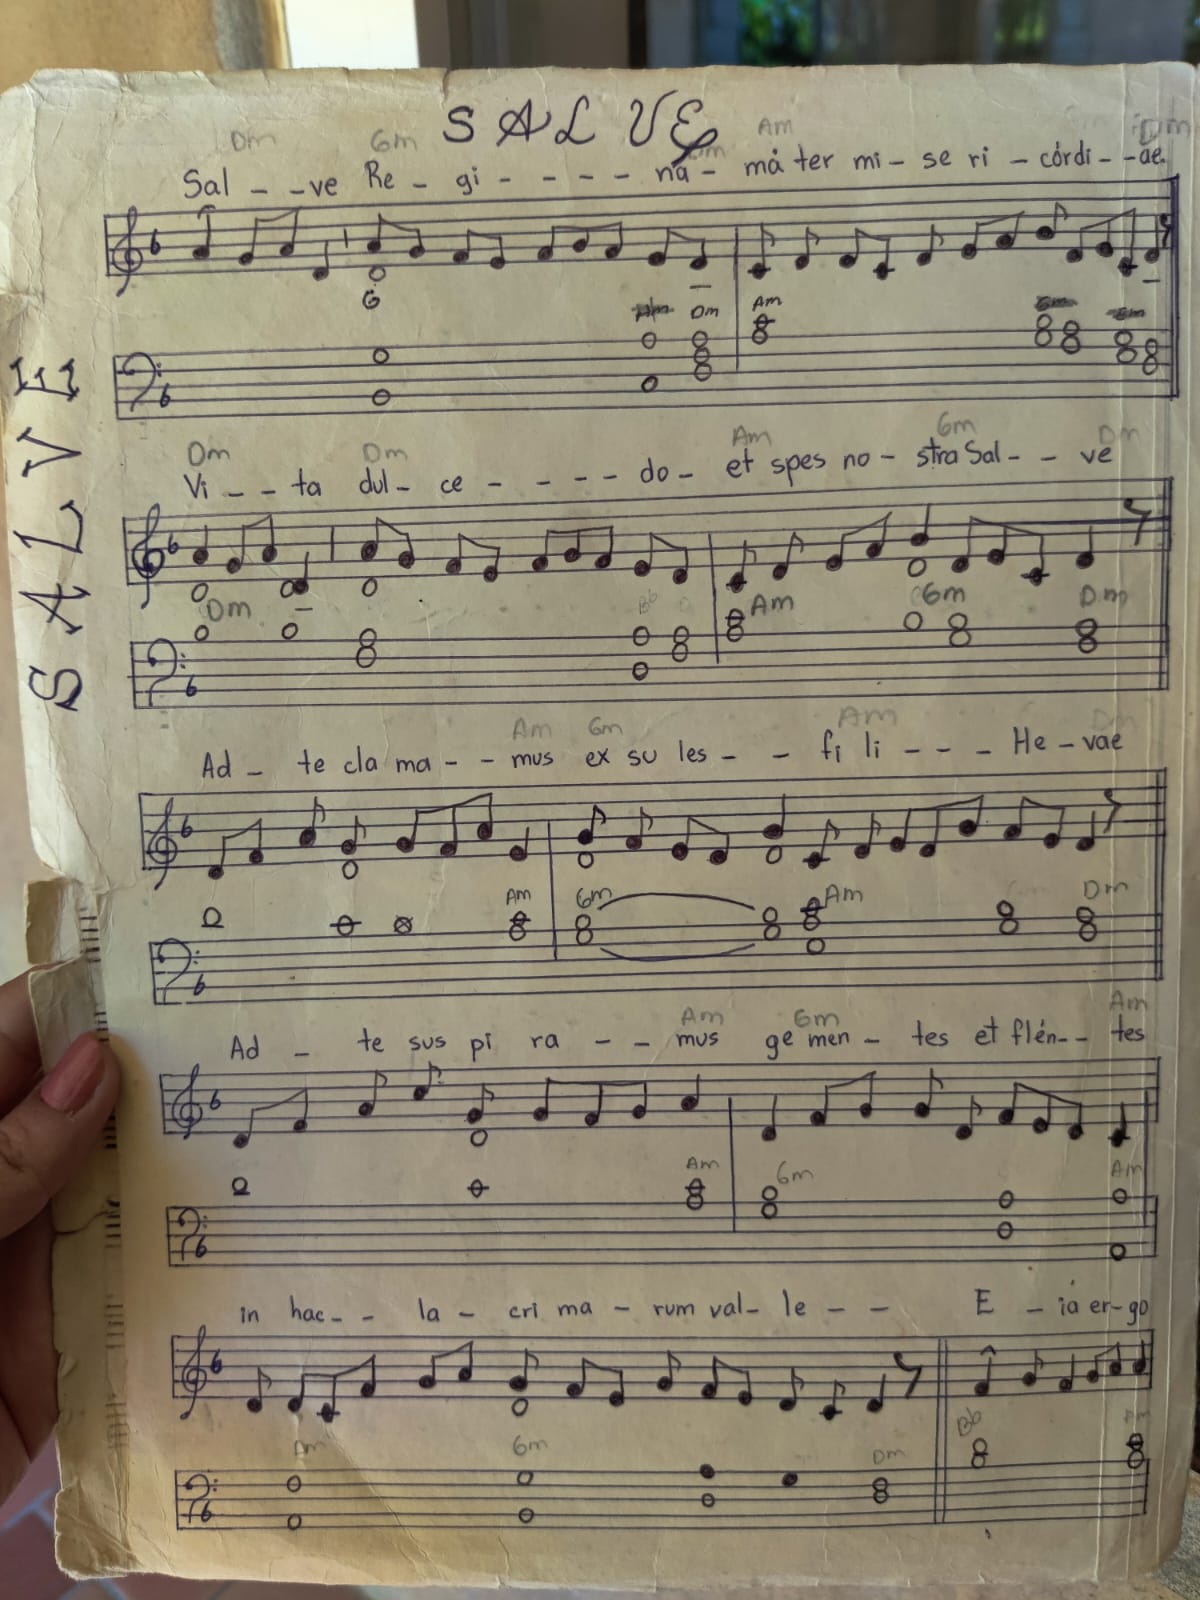 SALVE
Dm Gm Dm Am Dm
Sal - - ve Re - gi - - - - na - máter mi - se ri - córdi - - ae.
G
Dm Am
SALVE
Dm Dm Am Gm Dm
Vi - - ta dul - ce - - - - do - et spes no - stra Sal - - ve
Dm Bb Am Gm Dm
Am Gm Am Dm
Ad - te cla ma - - mus ex su les - - fi li - - - He - vae
Am Gm Am Dm
Am Gm Am
Ad - te sus pi ra - - mus ge men - tes et flén - - tes
Am Gm Am
in hac - - la - cri ma - rum val - le - - E - ia er - go
Dm Gm Dm Bb